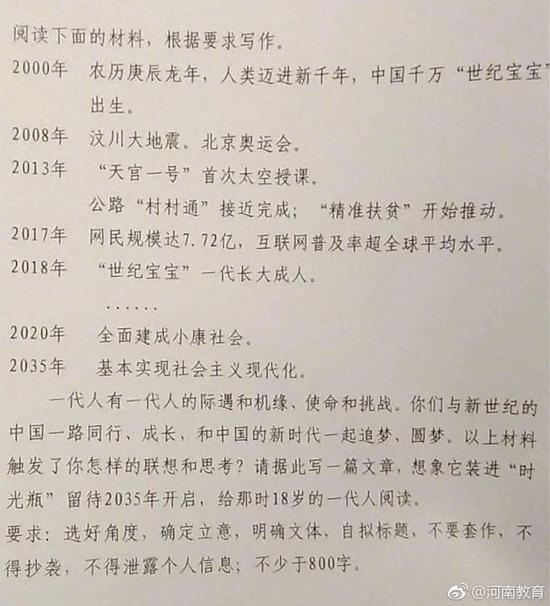 阅读下面的材料，根据要求写作。
2000年 农历庚辰龙年，人类迈进新千年，中国千万“世纪宝宝”
出生。
2008年 汶川大地震。北京奥运会。
2013年 “天宫一号”首次太空授课。
公路“村村通”接近完成；“精准扶贫”开始推动。
2017年 网民规模达7.72亿，互联网普及率超全球平均水平。
2018年 “世纪宝宝”一代长大成人。
......
2020年 全面建成小康社会。
2035年 基本实现社会主义现代化。
一代人有一代人的际遇和机缘、使命和挑战。你们与新世纪的
中国一路同行、成长，和中国的新时代一起追梦、圆梦。以上材料
触发了你怎样的联想和思考？请据此写一篇文章，想象它装进“时
光瓶”留待2035年开启，给那时18岁的一代人阅读。
要求：选好角度，确定立意，明确文体，自拟标题，不要套作，不
得抄袭，不得泄露个人信息；不少于800字。
@河南教育